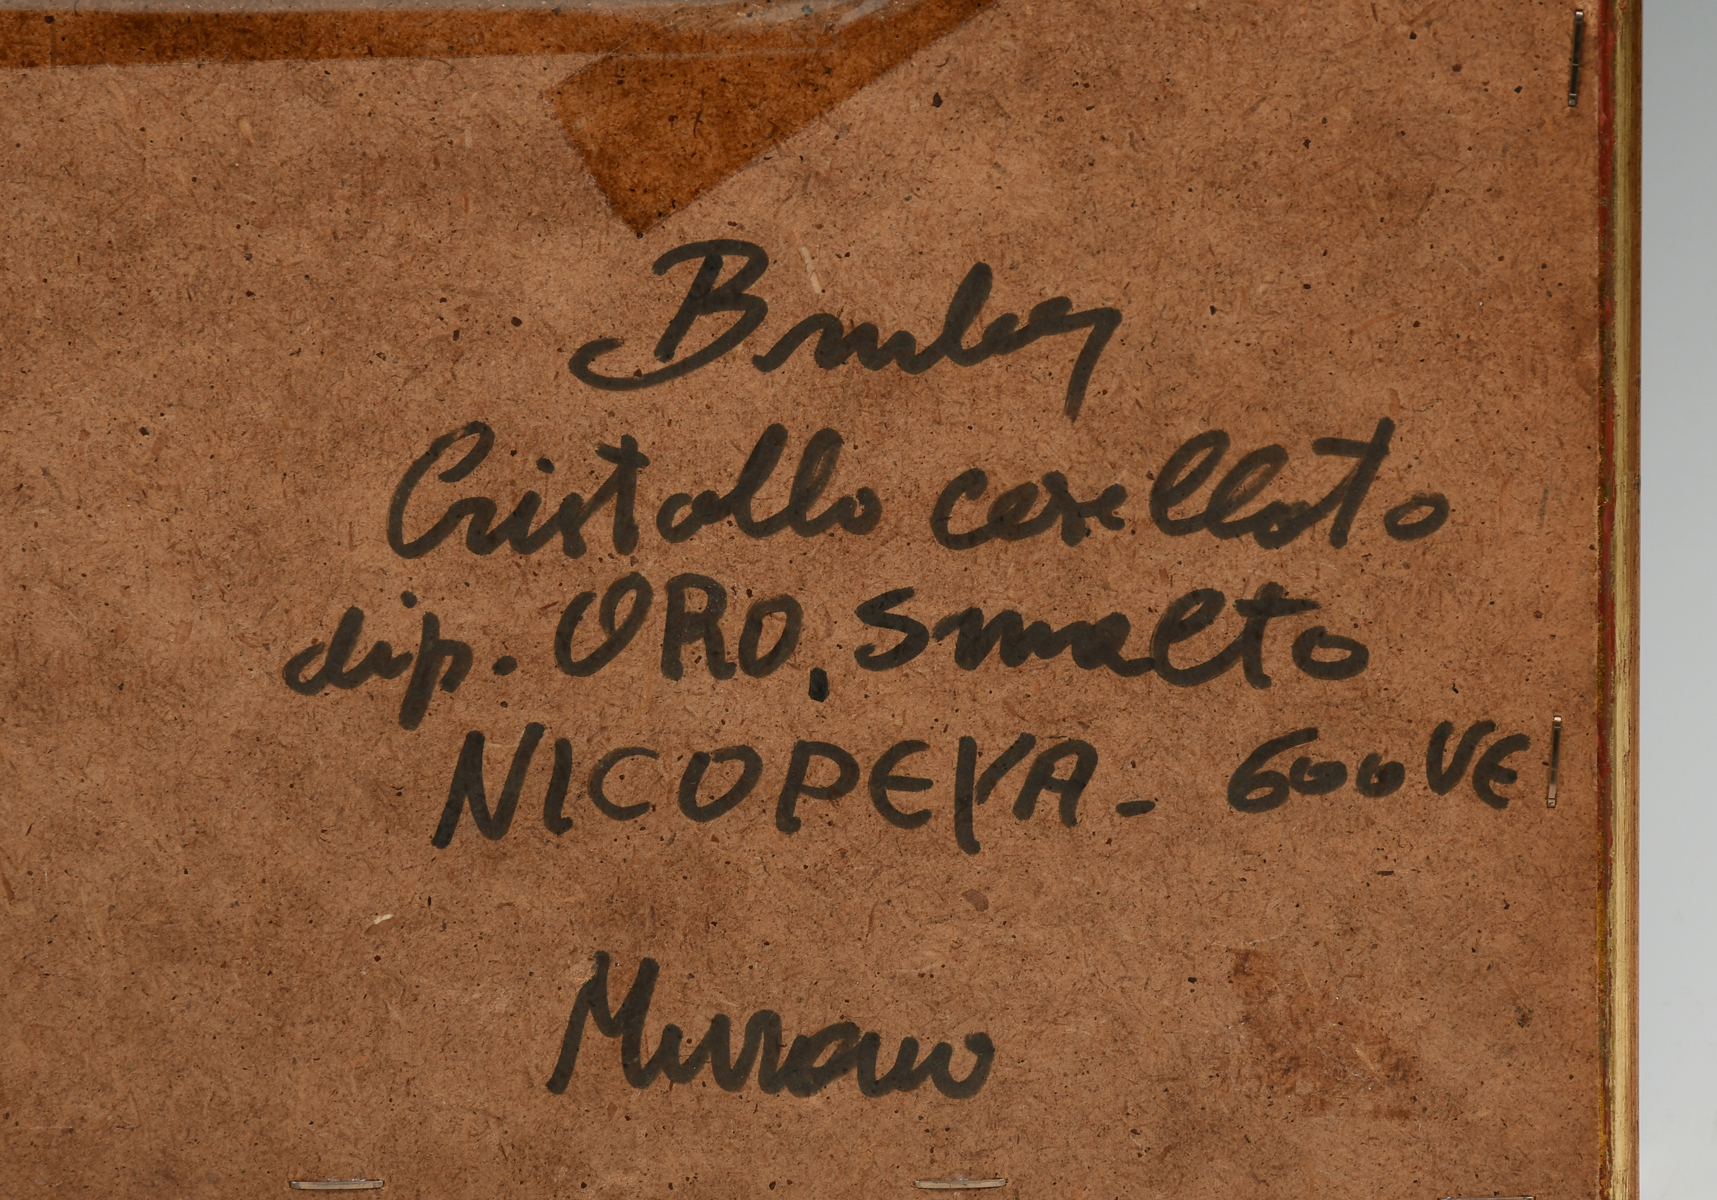 Cristallo cesellato
dip. ORO, smalto
NICOPEYA - 600 VE
Murano